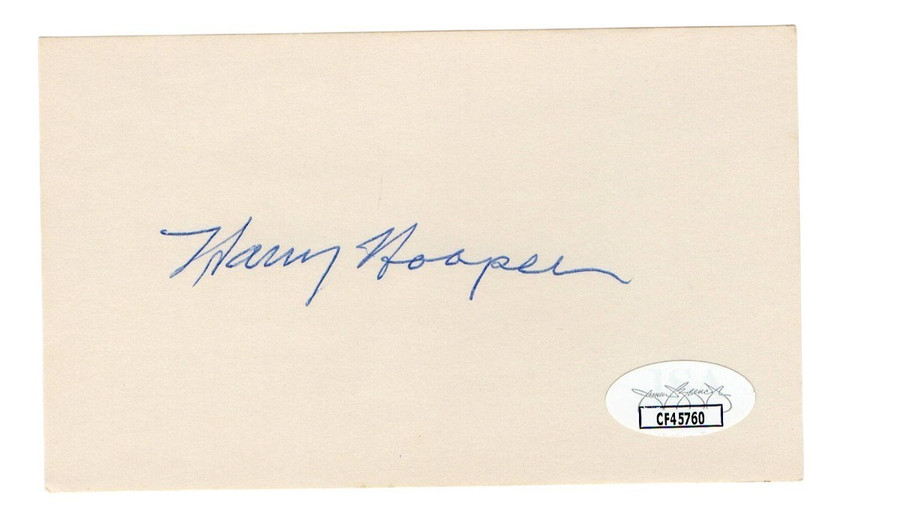 Harry Hooper
CF45760